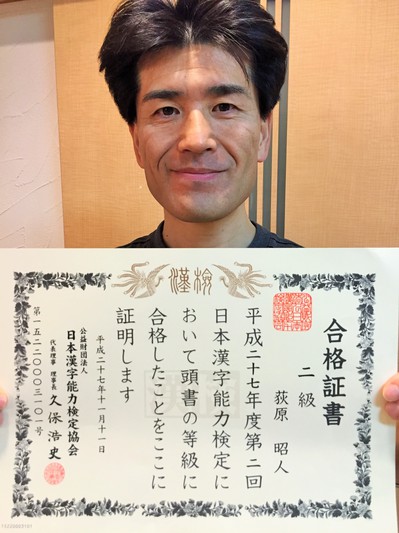 漢検
合格証書
二級
荻原 昭人
平成二十七年度第二回
日本漢字能力検定に
おいて頭書の等級に
合格したことをここに
証明します
平成二十七年十一月十一日
公益財団法人
日本漢字能力検定協会
代表理事 理事長 久保浩史
第一五二二〇〇〇三一〇一号